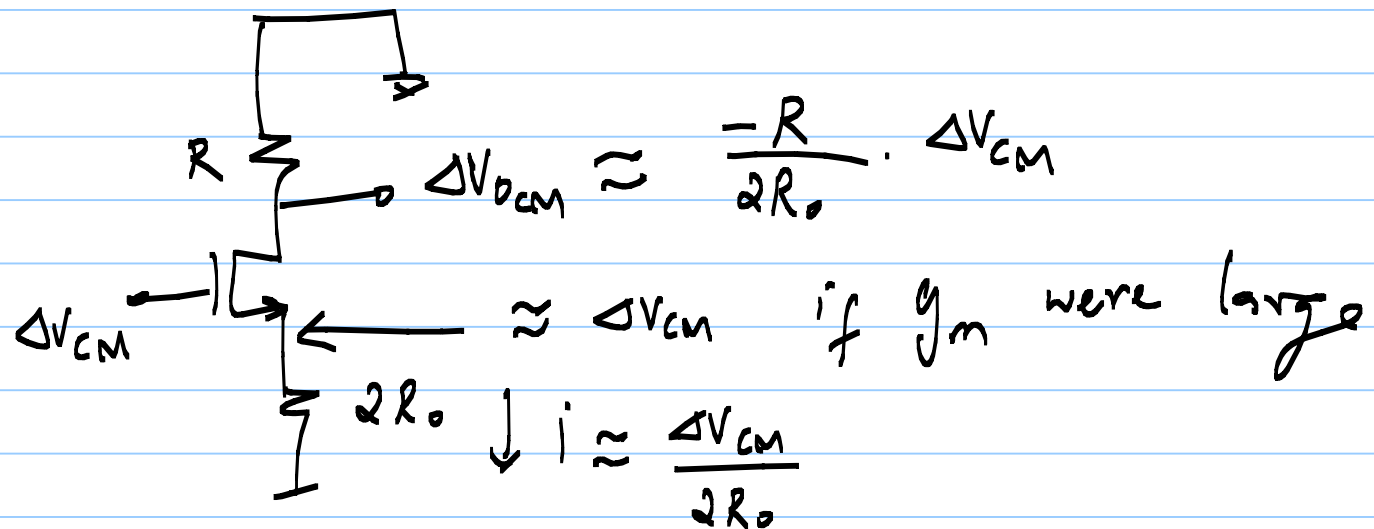 R ΔV_{OCM} ≈ \frac{-R}{2R_o} · ΔV_{CM}
ΔV_{CM} ≈ ΔV_{CM} if g_m were large
2R_o ↓ i ≈ \frac{ΔV_{CM}}{2R_o}